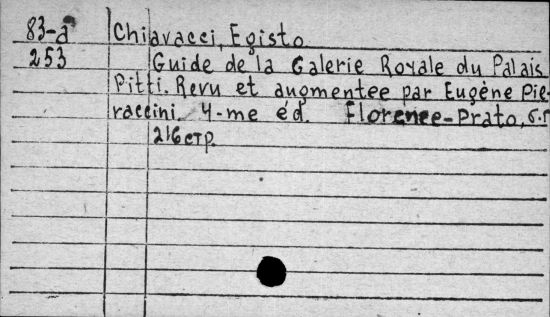 83-a Chiavacci, Egisto
253 Guide de la Galerie Royale du Palais
Pitti. Revu et augmentee par Eugène Pie-
raccini. 4-me éd. Florence-Prato, s.a
216 стр.